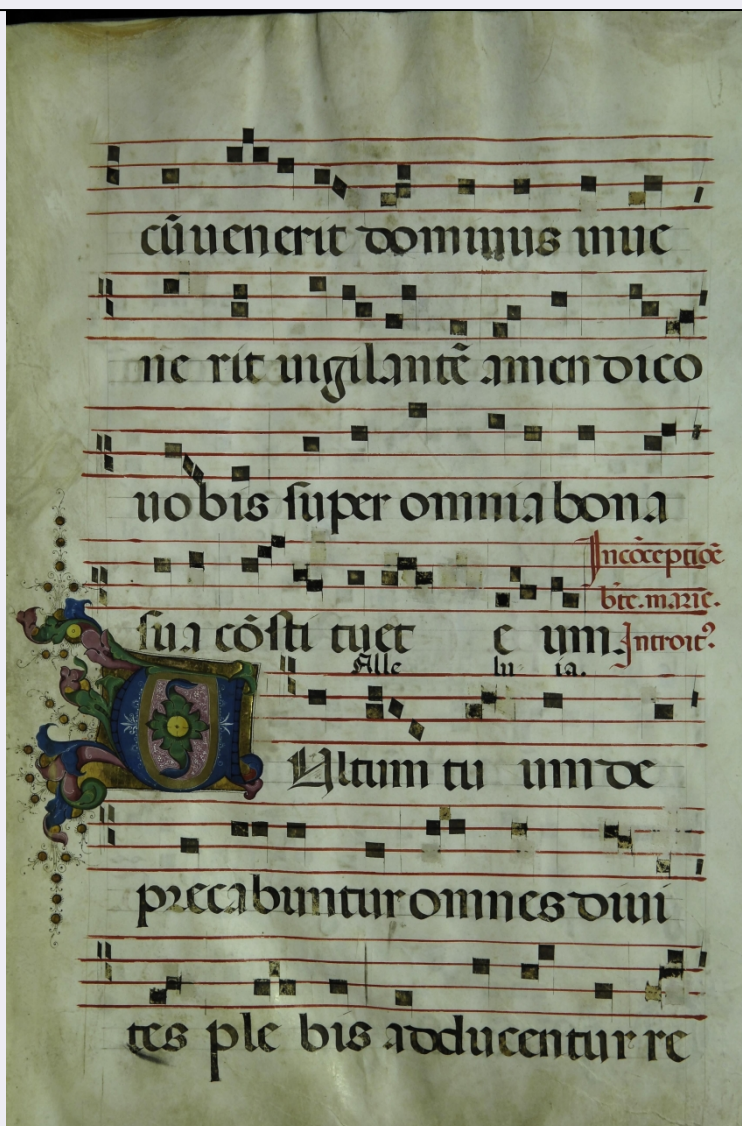 cū uenerit dominus inue
ne rit uigilantē amen dico
uobis super omnia bona
In cōceptiōe
bte. marie.
sua cōsti tuet e um.
Introit⁹
Alle lu ia.
Vultum tu um de
precabuntur omnes diui
tes ple bis adducentur re